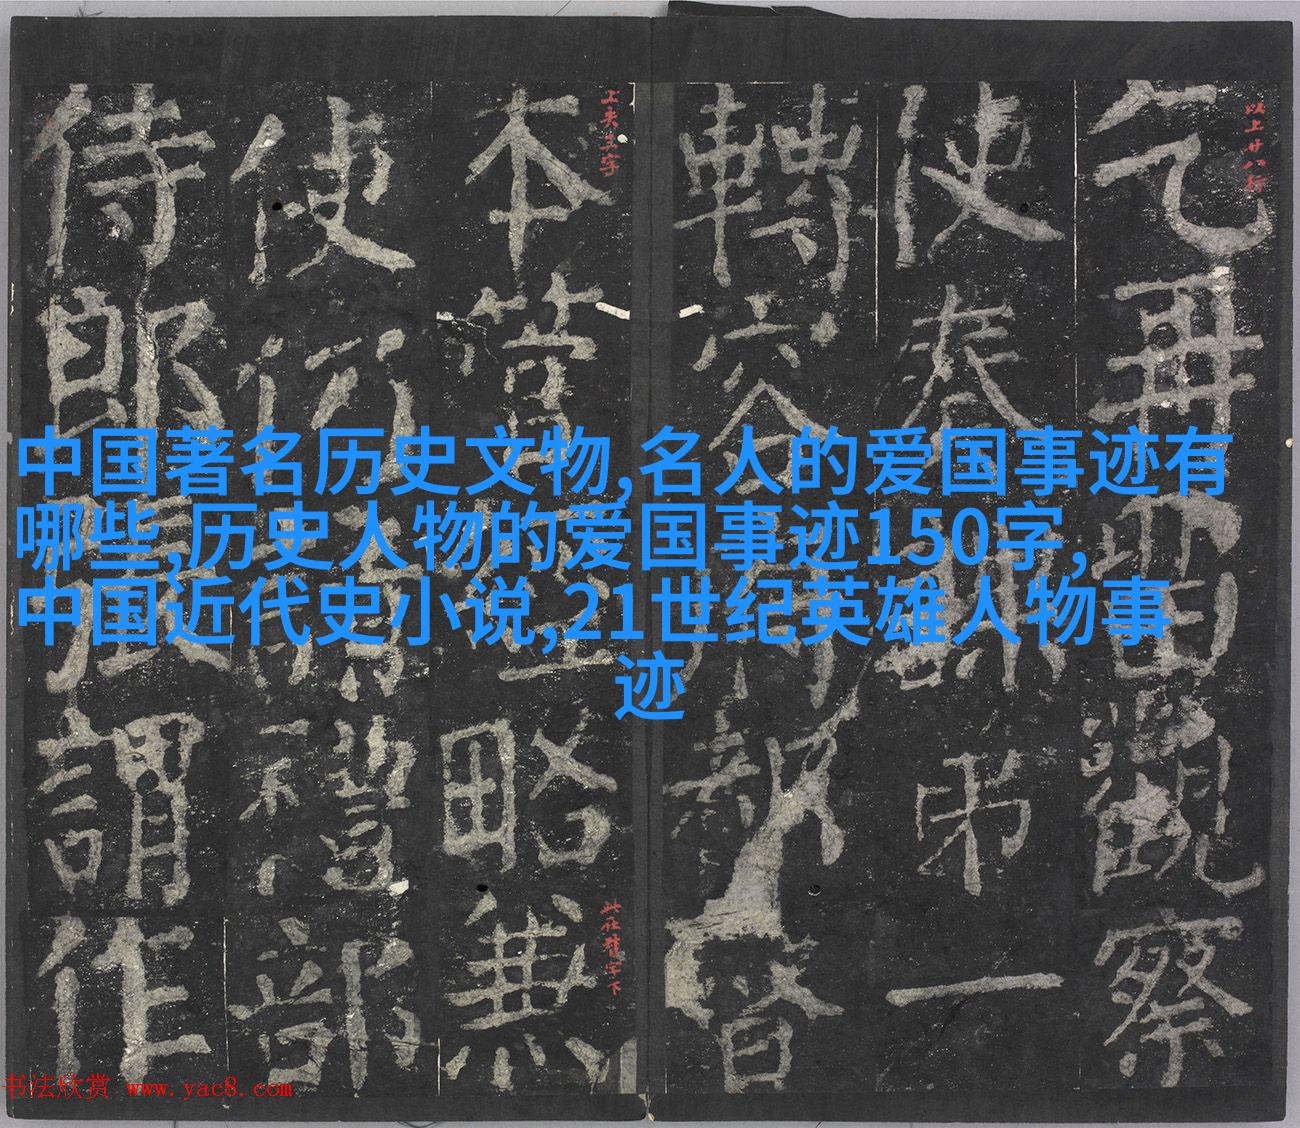 中国著名历史文物,名人的爱国事迹有
哪些,历史人物的爱国事迹150字,
中国近代史小说,21世纪英雄人物事
迹
以上廿八行
乞再觀察
使奉弟一
轉督
本管略無
使禮部
侍郎張謂作
书法欣赏 www.yac8.com